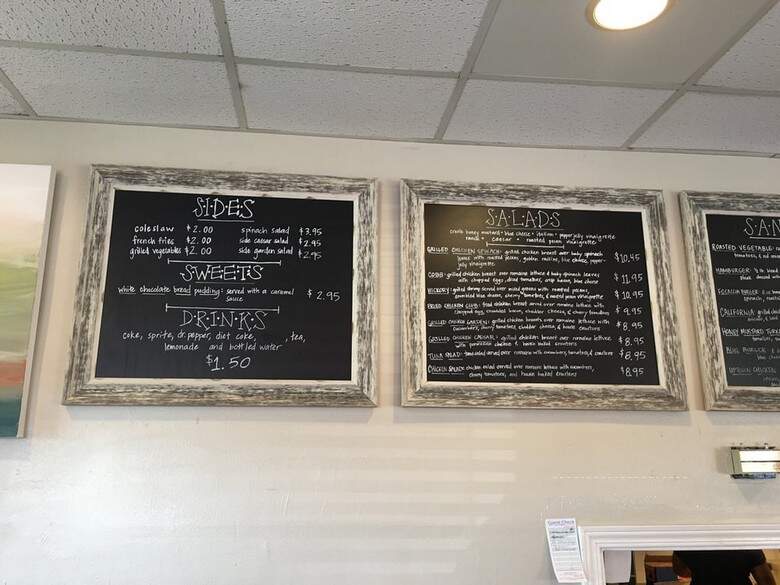 SIDES
coleslaw $2.00
french fries $2.00
grilled vegetables $2.00
spinach salad $3.95
side caesar salad $2.95
side garden salad $2.95
SWEETS
white chocolate bread pudding: served with a caramel
sauce $2.95
D·R·I·N·K·S
coke, sprite, dr. pepper, diet coke, , tea,
lemonade and bottled water
$1.50
S·A·L·A·D·S
honey mustard · blue cheese · italian · pepper jelly vinaigrette
ranch · caesar · roasted pecan vinaigrette
GRILLED CHICKEN SPINACH: grilled chicken breast over baby spinach
roasted pecans, golden raisins, blue cheese, pepper-
jelly vinaigrette $10.95
COBB: grilled chicken breast over romaine lettuce & baby spinach leaves
with chopped eggs, diced tomatoes, crisp bacon, blue cheese $11.95
HICKORY: grilled served over mixed greens with roasted pecans
crumbled blue cheese, cherry tomatoes, & roasted pecan vinaigrette $10.95
FRIED CHICKEN CLUB: fried chicken breast served over romaine with
chopped egg, crumbled bacon, cheddar cheese, & cherry tomatoes $9.95
GRILLED CHICKEN GARDEN: grilled chicken breast over romaine lettuce with
cucumbers, cherry tomatoes, cheddar cheese, & house croutons $8.95
GRILLED CHICKEN CAESAR: grilled chicken breast over romaine lettuce
with parmesan cheese & house baked croutons $8.95
TUNA SALAD: tuna salad served over romaine with cucumbers, tomatoes, & croutons $8.95
CHICKEN SALAD: chicken salad served over romaine lettuce with cucumbers,
cherry tomatoes, and house baked croutons $8.95
SAN
ROASTED VEGETABLE
HAMBURGER
FOCACCIA BURGER
CALIFORNIA
HONEY MUSTARD TURKEY
UPTOWN CHICKEN